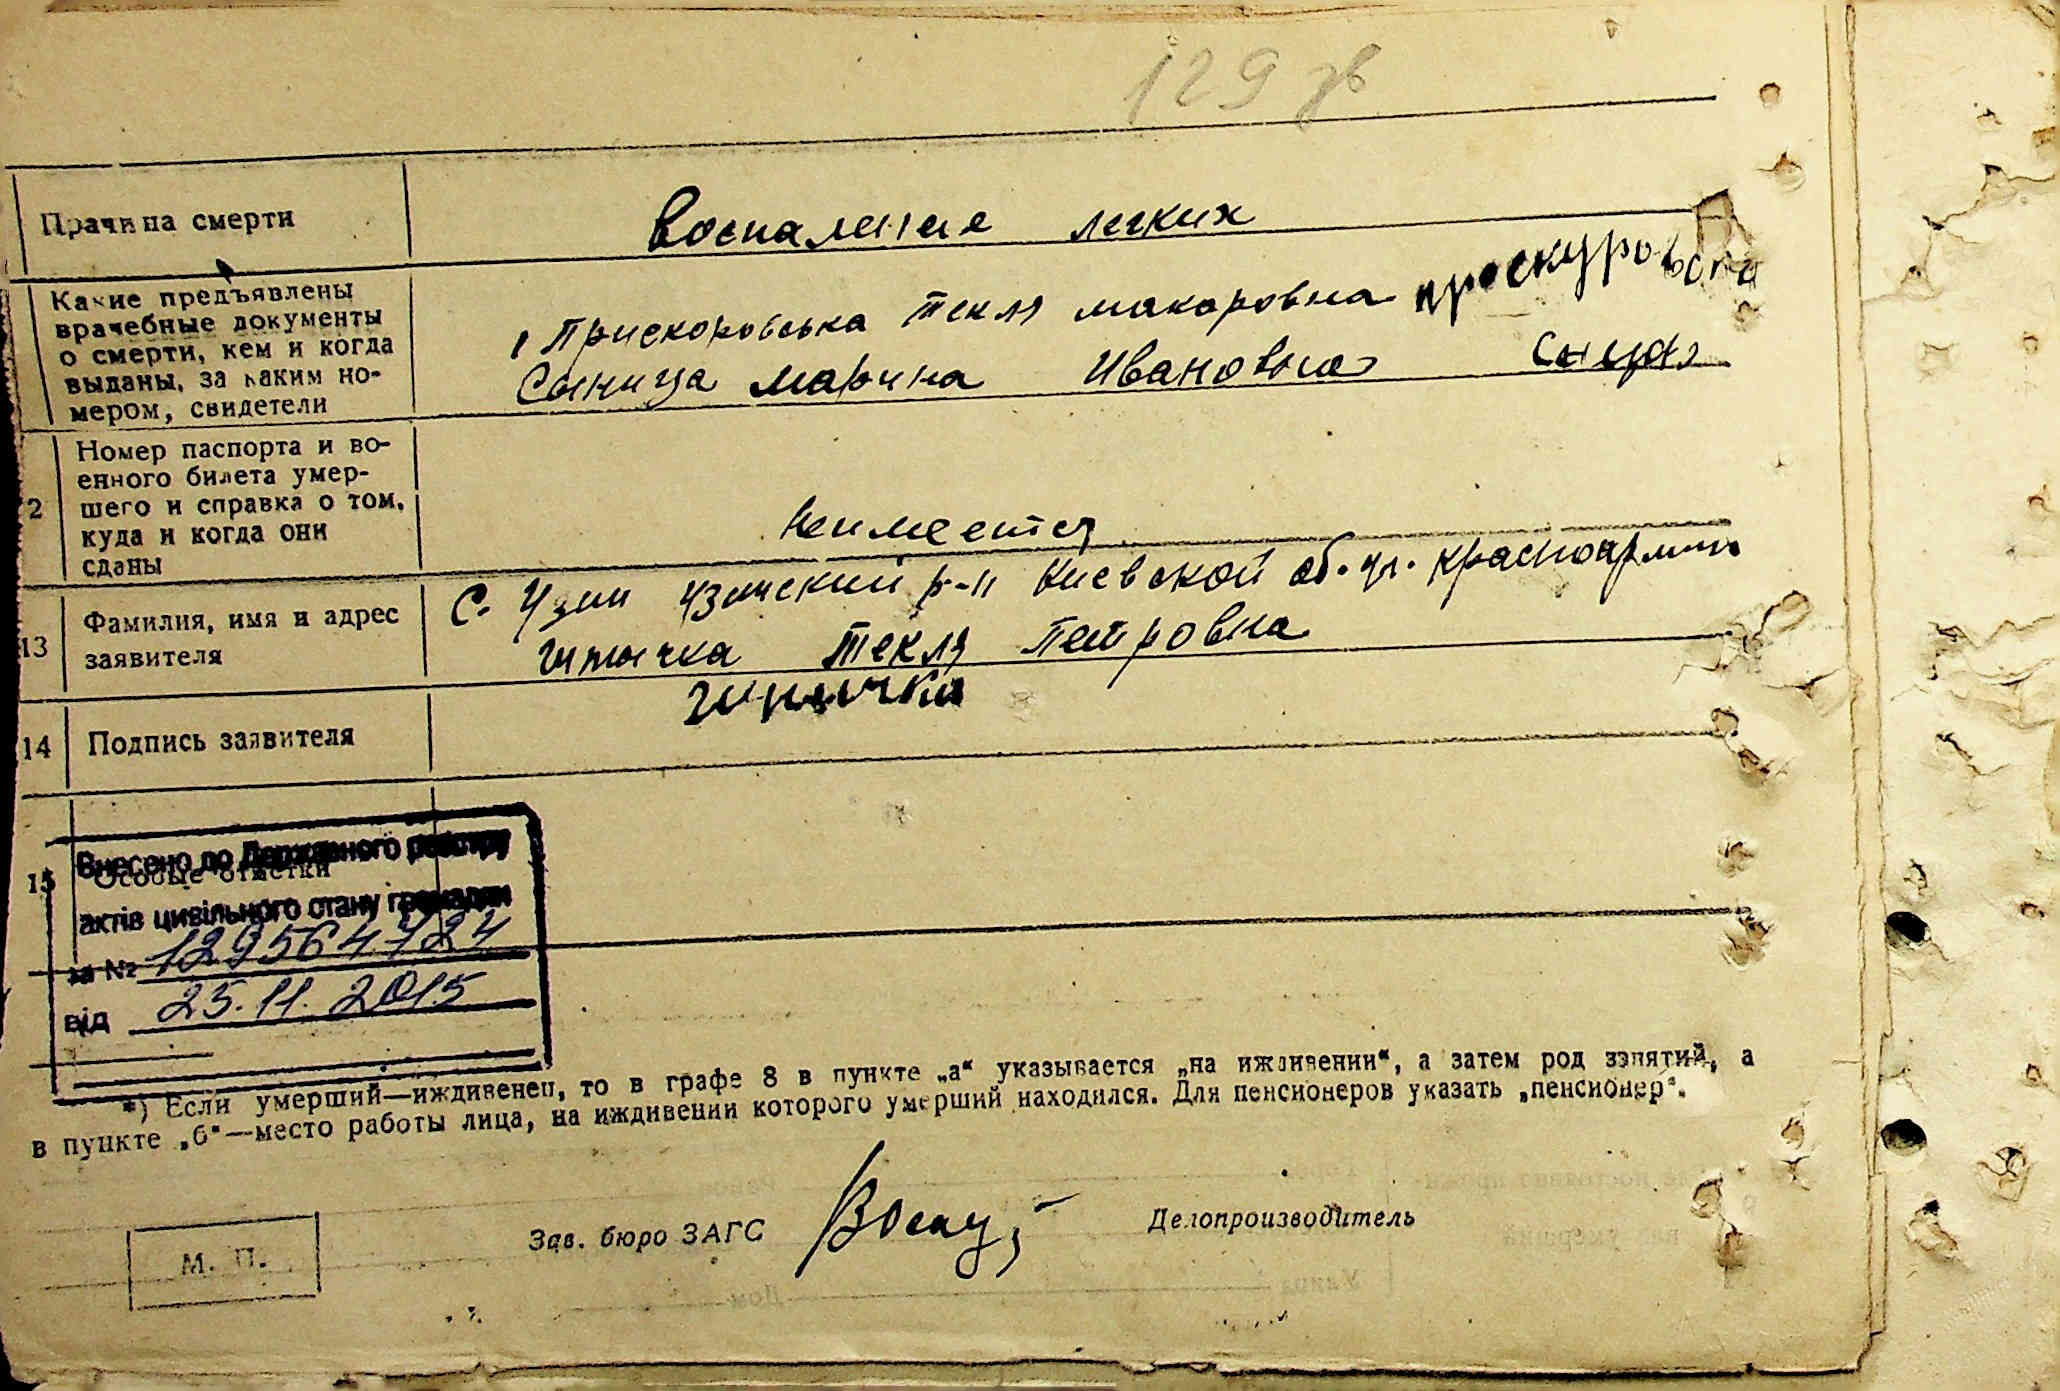 129 зв
Причина смерти
Воспаление легких
Какие предъявлены
врачебные документы
о смерти, кем и когда
выданы, за каким но-
мером, свидетели
Прискоровська Текля Макаровна Проскуровска
Сыница Марина Ивановна
2
Номер паспорта и во-
енного билета умер-
шего и справка о том,
куда и когда они
сданы
Неимеется
13
Фамилия, имя и адрес
заявителя
С. Узин Узинский р-н Киевской об. ул.
Текля Петровна
14
Подпись заявителя
15
Особые отметки
Внесено до Державного реєстру
актів цивільного стану громадян
за № 129564724
від 25.11.2015
*) Если умерший—иждивенец, то в графе 8 в пункте „а“ указывается „на иждивении“, а затем род занятий, а
в пункте „б“—место работы лица, на иждивении которого умерший находился. Для пенсионеров указать „пенсионер“.
М. П.
Зав. бюро ЗАГС
Делопроизводитель